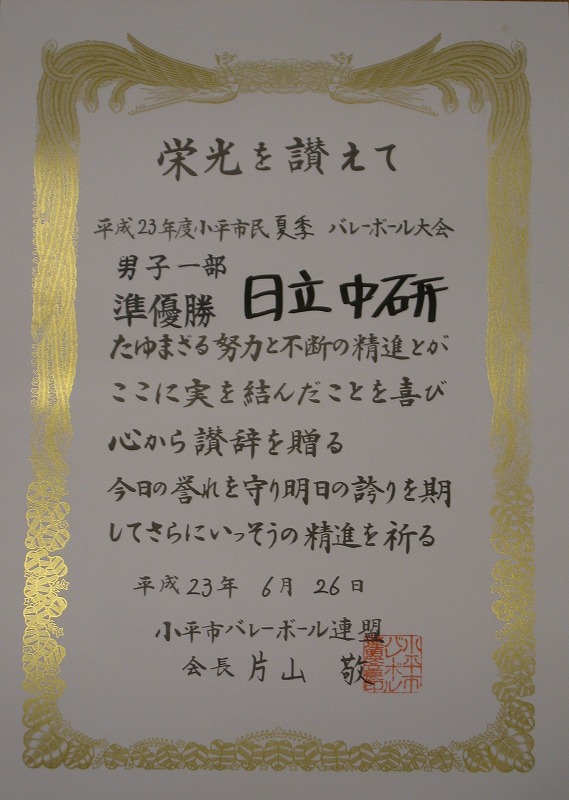 栄光を讃えて
平成23年度小平市民夏季 バレーボール大会
男子一部
準優勝 日立中研
たゆまざる努力と不断の精進とが
ここに実を結んだことを喜び
心から讃辞を贈る
今日の誉れを守り明日の誇りを期
してさらにいっそうの精進を祈る
平成23年 6月 26日
小平市バレーボール連盟
会長 片山 敬